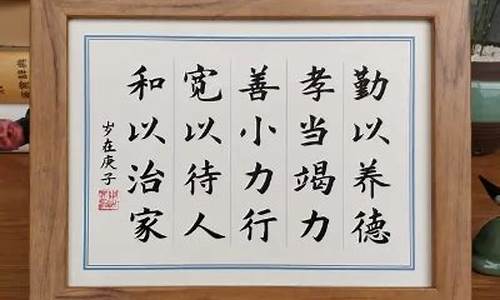 勤以养德
孝当竭力
善小力行
宽以待人
和以治家
岁在庚子